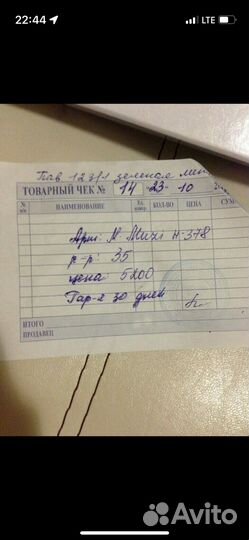 22:44
LTE
Пав 123/1 зеленая
ТОВАРНЫЙ ЧЕК № 14 - 23 - 10
№ п/п НАИМЕНОВАНИЕ Ед. измер. КОЛ-ВО ЦЕНА СУМ
Арт: M. Muzi H-378
р-р: 35
цена 5200
Гар-я 30 дней
ИТОГО
ПРОДАВЕЦ
Avito